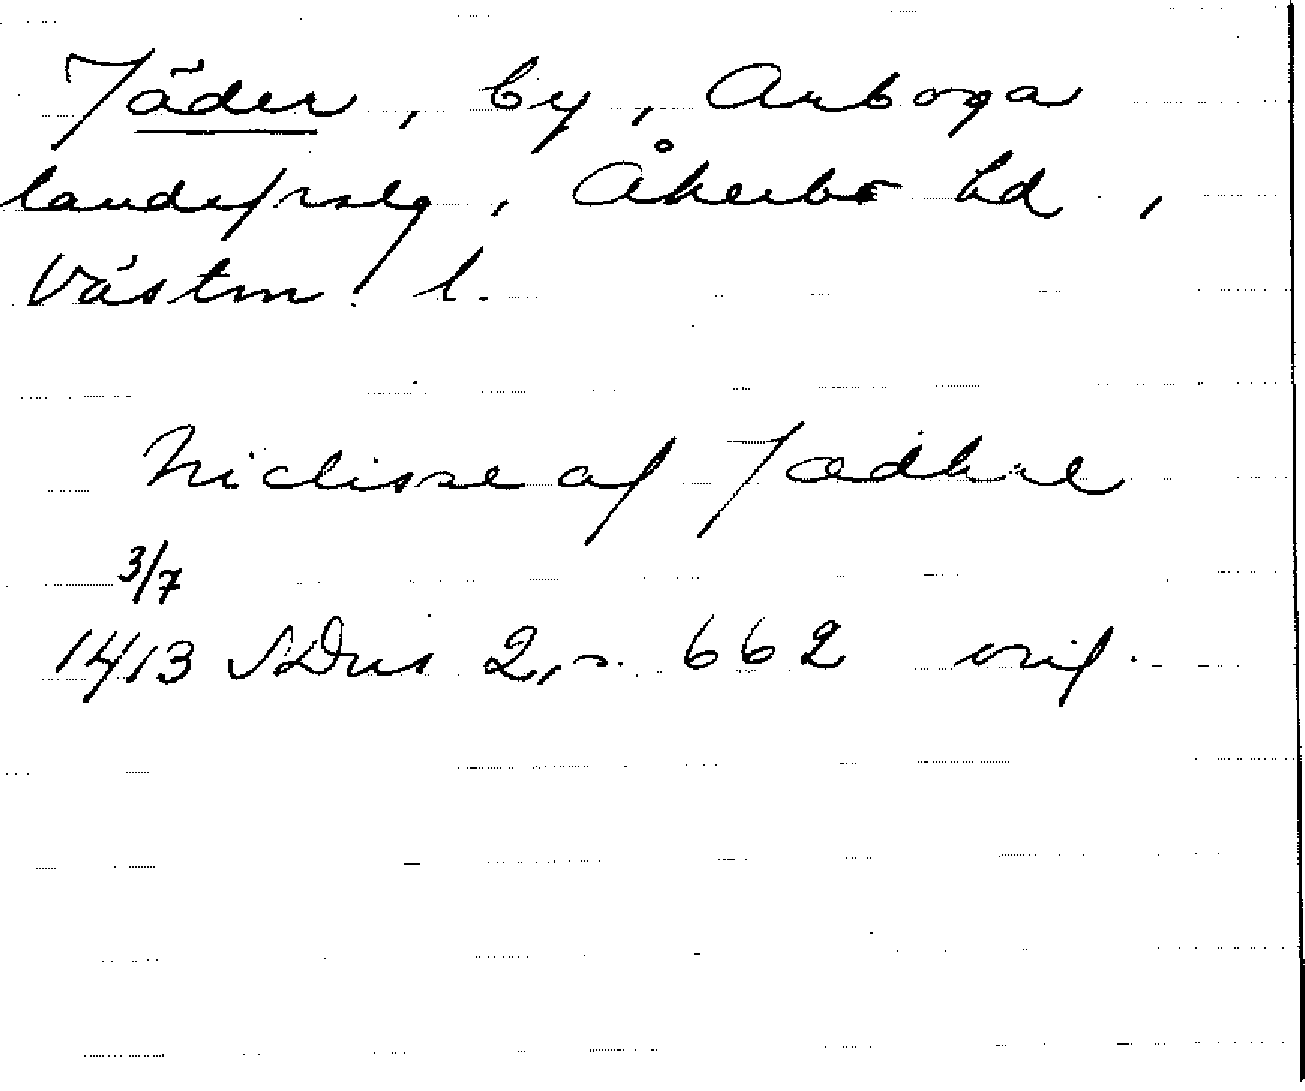 Jäder, by, Arboga
landsfrslg, Åkerbo hd,
Västm. l.
Niclisse af Jædhre
3/7
1413 SDns 2, s. 662 orig.